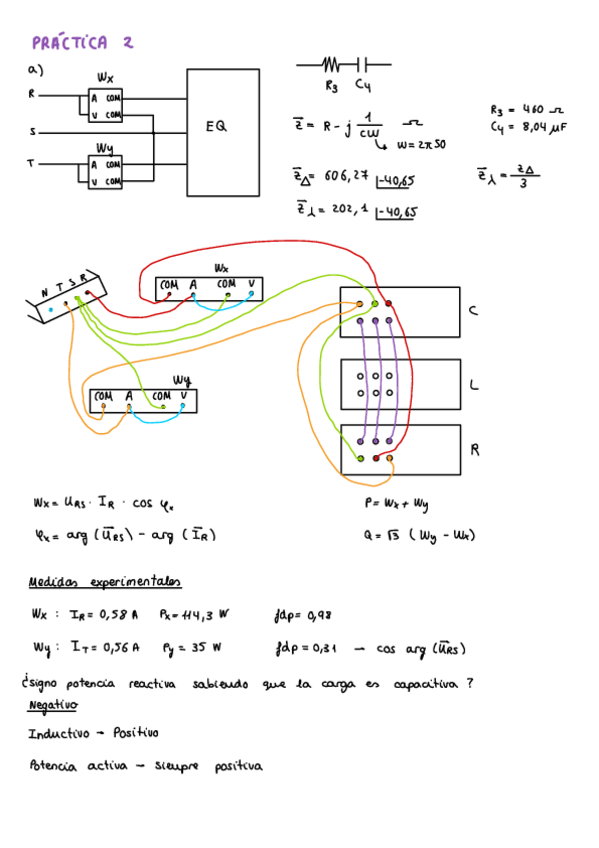 PRÁCTICA 2
a)
R
S
T
Wx
A COM
V COM
Wy
A COM
V COM
EQ
R₃ C₄
z̄ = R - j 1/cω Ω
↳ ω = 2π50
R₃ = 460 Ω
C₄ = 8,04 μF
z̄△ = 606,27 |-40,65
z̄⅄ = z△/3
z̄⅄ = 202,1 |-40,65
N T S R
Wx
COM A COM V
C
Wy
COM A COM V
L
R
Wx = U_RS · I_R · cos φx
P = Wx + Wy
φx = arg (Ū_RS) - arg (Ī_R)
Q = √3 (Wy - Wx)
Medidas experimentales
Wx : I_R = 0,58 A Px = 114,3 W fdp = 0,98
Wy : I_T = 0,56 A Py = 35 W fdp = 0,31 → cos arg (Ū_RS)
¿signo potencia reactiva sabiendo que la carga es capacitiva ?
Negativo
Inductivo → Positivo
Potencia activa → siempre positiva